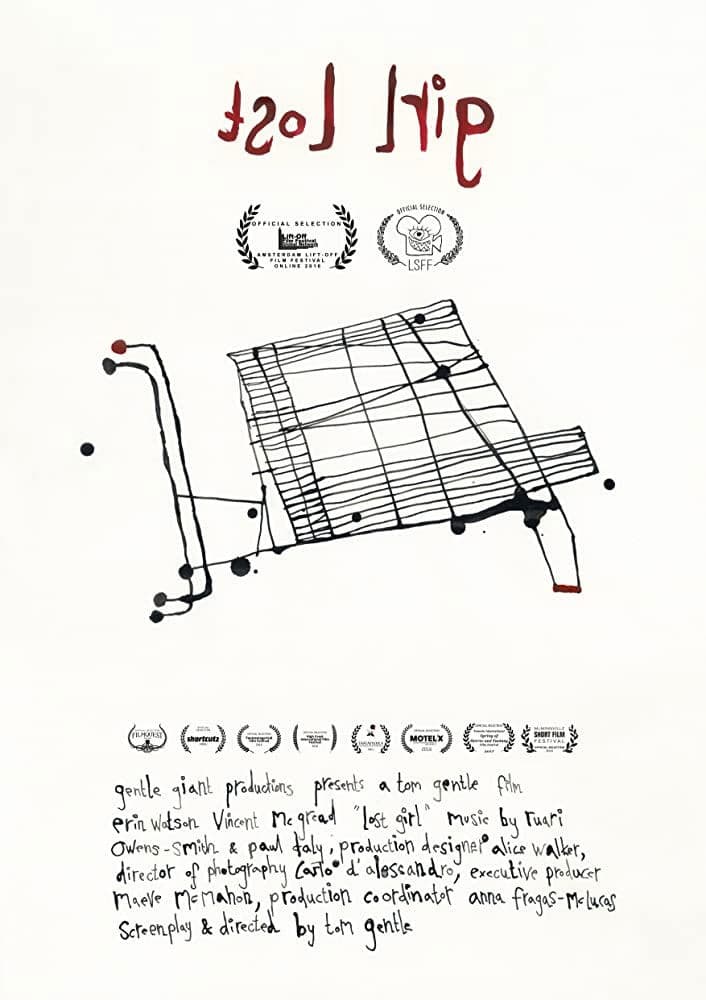 girl lost
OFFICIAL SELECTION
Lift-Off
AMSTERDAM LIFT-OFF
FILM FESTIVAL
ONLINE
OFFICIAL SELECTION
LSFF
FILMQUEST
shortcutz
MOTELX
SHORT FILM
FESTIVAL
gentle giant productions presents a tom gentle film
erin watson Vincent McGread "lost girl" Music by ruari
Owens-Smith & paul daly, production designer alice walker,
director of photography Carlo d'alessandro, executive producer
Maeve McMahon, production coordinator anna fragas-McLucas
Screenplay & directed by tom gentle